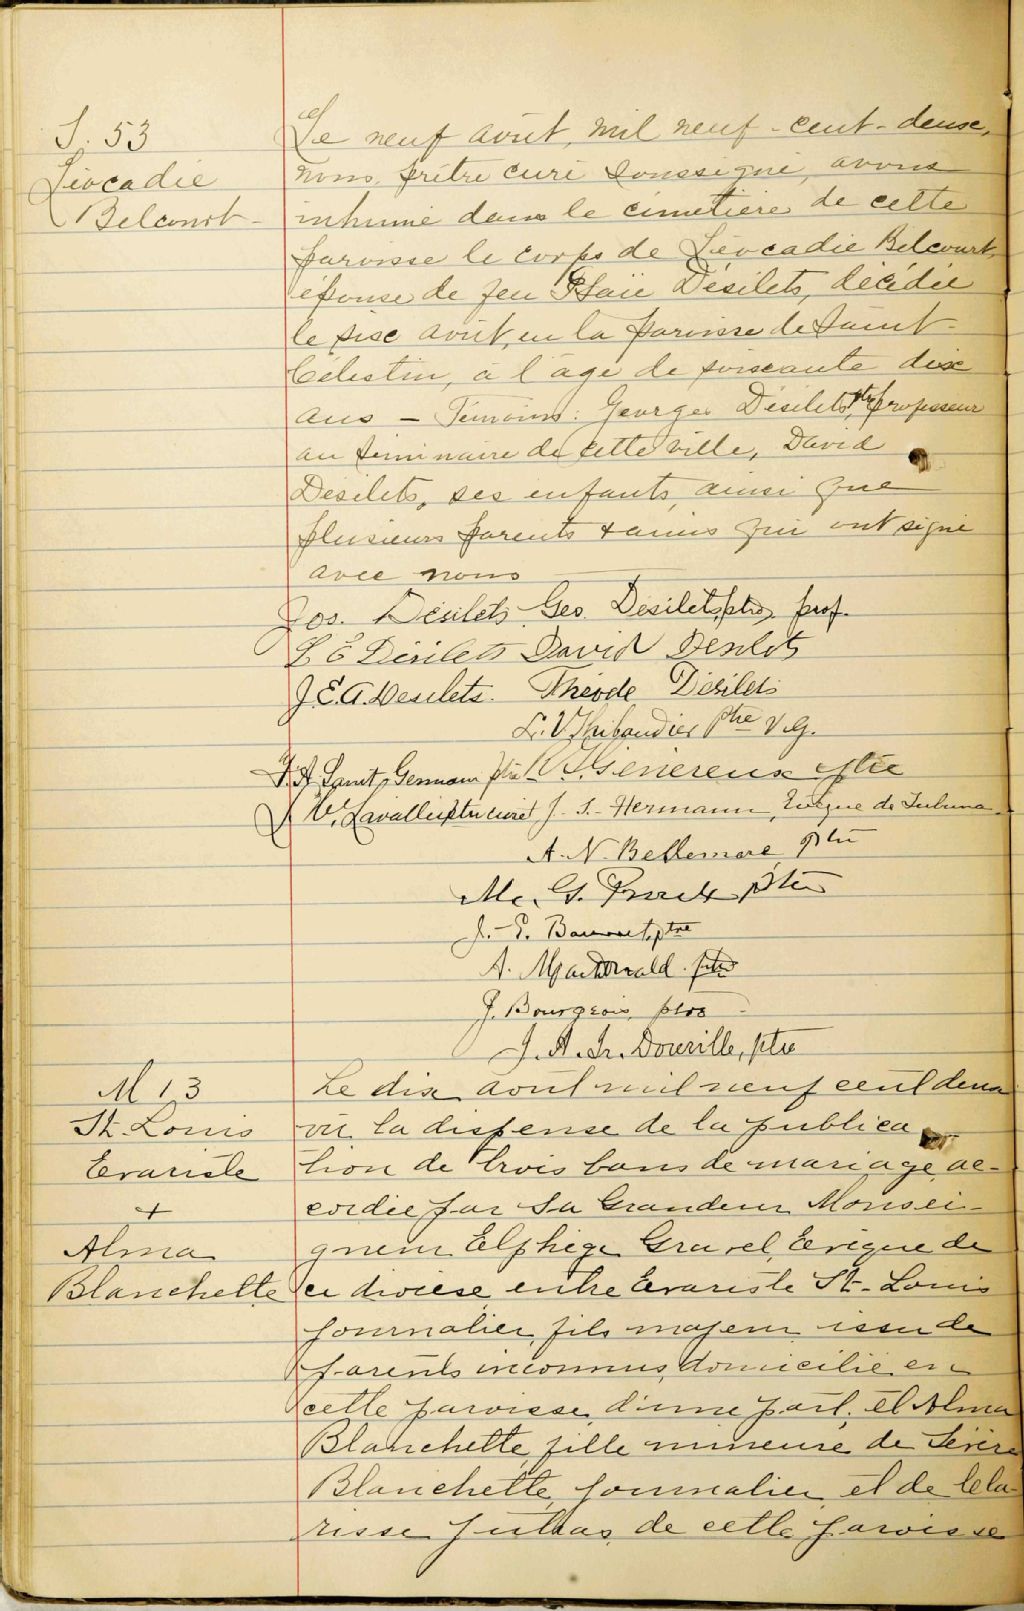 S. 53
Léocadie
Belcourt
Le neuf août, mil neuf-cent-douze,
nous, prêtre curé soussigné, avons
inhumé dans le cimetière de cette
paroisse le corps de Léocadie Belcourt,
épouse de feu Isaïe Désilets, décédée
le six août, en la paroisse de Saint-
Célestin, à l'âge de soixante dix
ans — Témoins: Georges Désilets, ptre, professeur
au séminaire de cette ville, David
Désilets, ses enfants, ainsi que
plusieurs parents & amis qui ont signé
avec nous
Jos. Désilets Geo. Désilets, ptre, prof.
L E Désilets David Desilets
J.E.A. Desilets. Théode Désilets
L. V. Thibaudier Ptre V.G.
F. A. Saint-Germain ptre Généreux ptre
V. Lavallée ptre curé J. S. Hermann, Evêque de
A. N. Bellemare, ptre
Mc. G. Proulx ptre
J.-E. ptre
A. MacDonald. ptre
J. Bourgeois, ptre
J. A. Ir. Douville, ptre
M 13
St. Louis
Evariste
+
Alma
Blanchette
Le dix août mil neuf cent douze
vu la dispense de la publica
tion de trois bans de mariage, ac-
cordée par Sa Grandeur Monsei-
gneur Elphège Gravel, Evêque de
ce diocèse, entre Evariste St-Louis
journalier, fils majeur issu de
parents inconnus, domicilié en
cette paroisse, d'une part; et Alma
Blanchette, fille mineure de Sévère
Blanchette, journalier, et de Cla-
risse Jutras, de cette paroisse